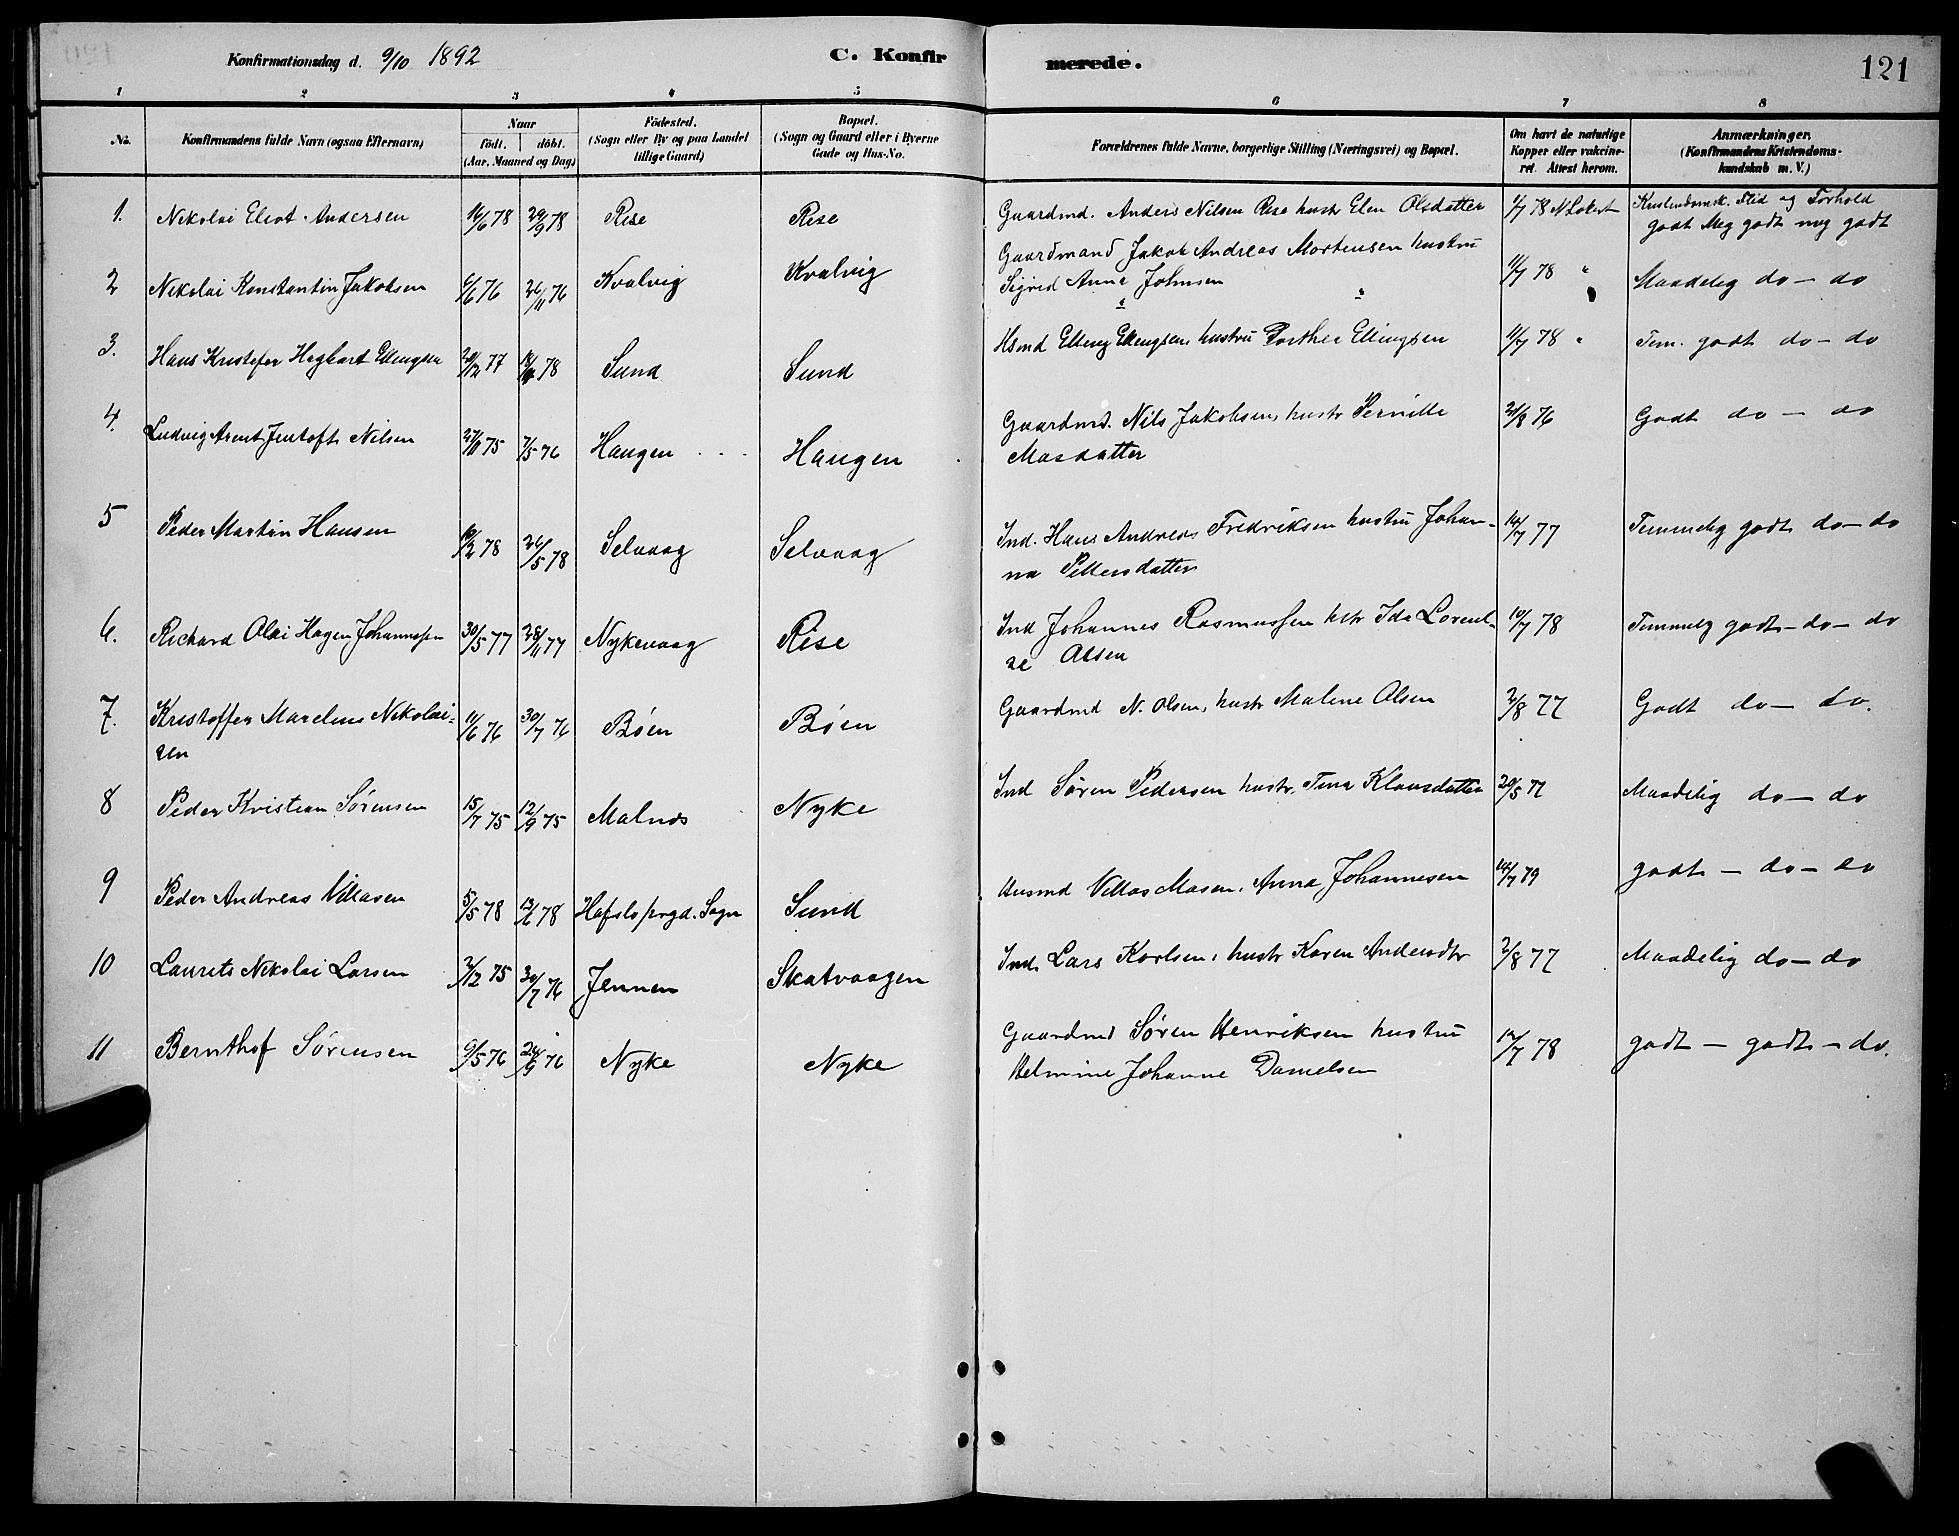 Konfirmationsdag d. 9/10 1892 C. Konfirmerede. 121
1 2 3 4 5 6 7 8
No. Konfirmandens fulde Navn (ogsaa Efternavn) Naar födt. döbt. (Aar, Maaned og Dag) Födested. (Sogn eller By og paa Landet tillige Gaard) Bopæl. (Sogn og Gaard eller i Byerne Gade og Hus-No. Forældrenes fulde Navne, borgerlige Stilling (Næringsvei) og Bopæl. Om havt de naturlige Kopper eller vakcineret. Attest herom. Anmærkninger. (Konfirmandens Kristendomskundskab m. V.)
1. Nikolai Eliot Andersen 16/6 78 29/9 78 Rise Rise Gaardmd. Anders Nilsen Rise hustr Elen Olsdatter 1/7 78 Kristendomsk. Flid og Forhold
godt Meg godt meg godt
2 Nikolai Konstantin Jakobsen 6/6 76 26/11 76 Kvalvig Kvalvig Gaardmand Jakob Andreas Mortensen hustru
Sigrid Anna Johnsen 11/7 78 " Maadelig do - do
3. Hans Kristofer Hagbart Ellingsen 20/12 77 78 Sund Sund Hsmd Elling Ellingsen, hustru Dorthea Ellingsen 11/7 78 " Tem. godt do - do
4. Ludvig Arent Jentoft Nilsen 27/11 75 7/5 76 Haugen Haugen Gaardmd. Nils Jakobsen, hustr Pernille
Masdatter 21/8 76 Godt do - do
5 Peder Martin Hansen 78 26/5 78 Selvaag Selvaag Ind. Hans Andreas Fredriksen hustru Johan-
na Pettersdatter 14/7 77 Temmelig godt do - do
6. Richard Olai Hagen Johannessen 30/5 77 28/11 77 Nykevaag Rise Ind Johannes Rasmussen hstr Ida Lorent-
ze Olsen 10/7 78 Temmelig godt - do - do
7. Kristoffer Marelius Nikolai=
sen 11/6 76 30/7 76 Bøen Bøen Gaardmd N. Olsen, hustr Malene Olsen 2/8 77 Godt do - do.
8 Peder Kristian Sørensen 15/7 75 12/9 75 Malnes Nyke Ind Søren Pedersen hustr. Tina Klausdatter 20/5 77 Maadelig do - do
9 Peder Andreas Villasen 5/5 78 78 Hafslo prgd. Sogn Sund Husmd Villas Masen, Anna Johannesen 14/7 79 godt - do - do
10 Laurits Nikolai Larsen 2/12 75 30/7 76 Jennen Skatvaagen Ind. Lars Karlsen, hustr Karen Andersdtr 2/8 77 Maadelig do - do
11 Bernthof Sørensen 9/5 76 24/9 76 Nyke Nyke Gaardmd Søren Henriksen hustru
Helmine Johanne Danielsen 12/7 78 godt - godt - do.